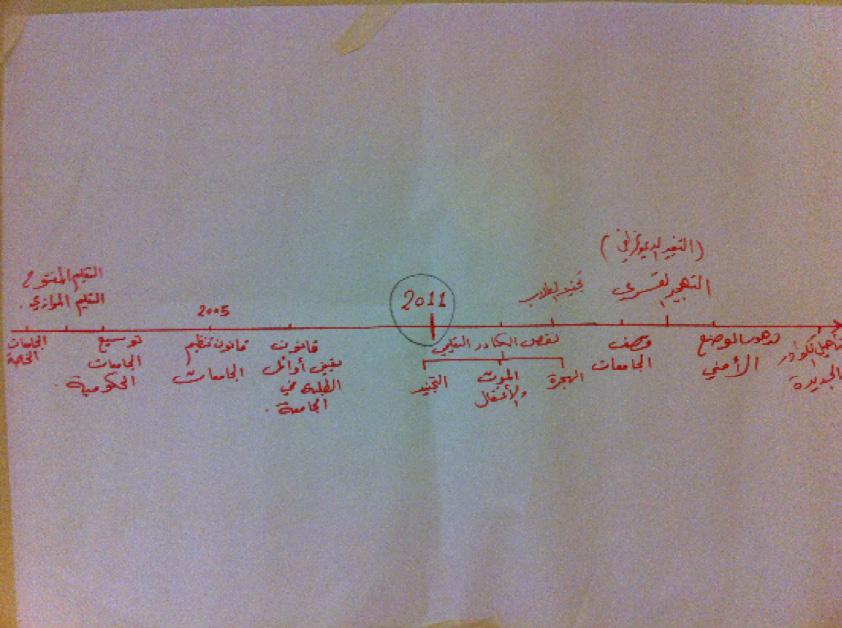 (التغيير الديموغرافي)
التهجير القسري
تجنيد الطلاب
2011
2005
التعليم المفتوح
التعليم الموازي.
الجامعات
الخاصة
توسيع
الجامعات
الحكومية.
قانون تنظيم
الجامعات
قانون
تعيين أوائل
الطلبة في
الجامعة.
نقص الكادر التعليمي
التجنيد
الموت
والاعتقال
الهجرة
قصف
الجامعات
تدهور الوضع
الأمني
تأهيل الكوادر
الجديدة